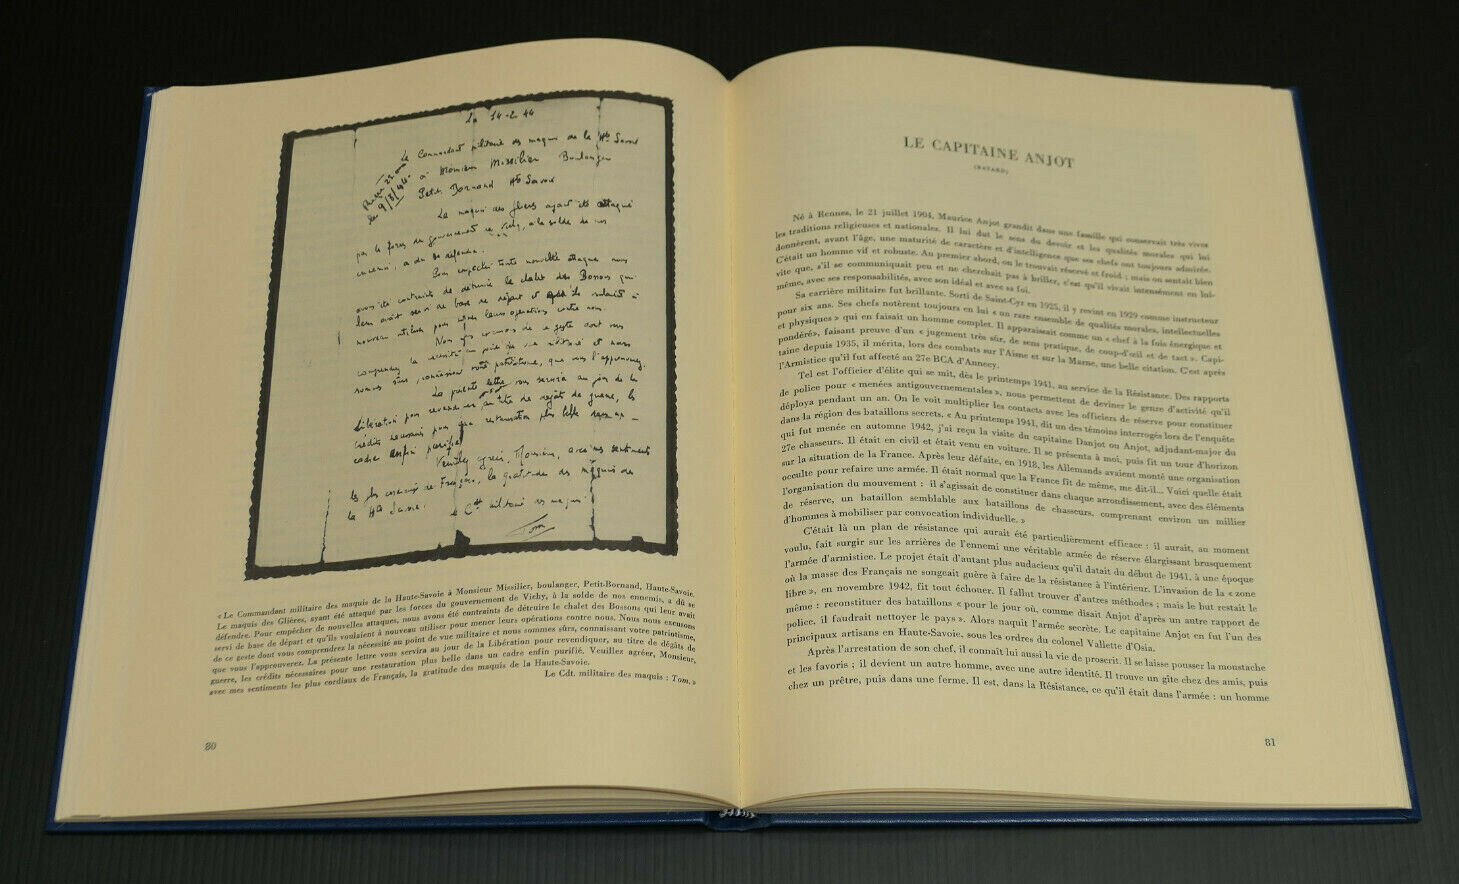 Le 14-2-44
Le Commandant militaire des maquis de la Hte Savoie
à Monsieur Missilier Boulanger
Petit Bornand Hte Savoie
Le maquis des Glières ayant été attaqué
par les forces du gouvernement de Vichy, à la solde de nos
ennemis, a dû se défendre.
Pour empêcher toute nouvelle attaque nous
avons été contraints de détruire le chalet des Bossons qui
leur avait servi de base de départ et qu'ils voulaient à
nouveau utiliser pour mener leurs opérations contre nous.
Nous nous excusons de ce geste dont vous
comprendrez la nécessité au point de vue militaire et nous
sommes sûrs, connaissant votre patriotisme, que vous l'approuverez.
La présente lettre vous servira au jour de la
Libération pour revendiquer au titre de dégâts de guerre, les
crédits nécessaires pour une restauration plus belle dans un
cadre enfin purifié.
Veuillez agréer, Monsieur, avec mes sentiments
les plus cordiaux de Français, la gratitude des maquis de
la Hte Savoie.
le Ct militaire des maquis
Tom
« Le Commandant militaire des maquis de la Haute-Savoie à Monsieur Missilier, boulanger, Petit-Bornand, Haute-Savoie.
Le maquis des Glières, ayant été attaqué par les forces du gouvernement de Vichy, à la solde de nos ennemis, a dû se
défendre. Pour empêcher de nouvelles attaques, nous avons été contraints de détruire le chalet des Bossons qui leur avait
servi de base de départ et qu'ils voulaient à nouveau utiliser pour mener leurs opérations contre nous. Nous nous excusons
de ce geste dont vous comprendrez la nécessité au point de vue militaire et nous sommes sûrs, connaissant votre patriotisme,
que vous l'approuverez. La présente lettre vous servira au jour de la Libération pour revendiquer, au titre de dégâts de
guerre, les crédits nécessaires pour une restauration plus belle dans un cadre enfin purifié. Veuillez agréer, Monsieur,
avec mes sentiments les plus cordiaux de Français, la gratitude des maquis de la Haute-Savoie.
Le Cdt. militaire des maquis : Tom. »
80
LE CAPITAINE ANJOT
(BAYARD)
Né à Rennes, le 21 juillet 1904, Maurice Anjot grandit dans une famille qui conservait très vives
les traditions religieuses et nationales. Il lui dut le sens du devoir et les qualités morales qui lui
donnèrent, avant l'âge, une maturité de caractère et d'intelligence que ses chefs ont toujours admirée.
C'était un homme vif et robuste. Au premier abord, on le trouvait réservé et froid ; mais on sentait bien
vite que, s'il se communiquait peu et ne cherchait pas à briller, c'est qu'il vivait intensément en lui-
même, avec ses responsabilités, avec son idéal et avec sa foi.
Sa carrière militaire fut brillante. Sorti de Saint-Cyr en 1925, il y revint en 1929 comme instructeur
pour six ans. Ses chefs notèrent toujours en lui « un rare ensemble de qualités morales, intellectuelles
et physiques » qui en faisait un homme complet. Il apparaissait comme un « chef à la fois énergique et
pondéré», faisant preuve d'un « jugement très sûr, de sens pratique, de coup-d'œil et de tact ». Capi-
taine depuis 1935, il mérita, lors des combats sur l'Aisne et sur la Marne, une belle citation. C'est après
l'Armistice qu'il fut affecté au 27e BCA d'Annecy.
Tel est l'officier d'élite qui se mit, dès le printemps 1941, au service de la Résistance. Des rapports
de police pour « menées antigouvernementales », nous permettent de deviner le genre d'activité qu'il
déploya pendant un an. On le voit multiplier les contacts avec les officiers de réserve pour constituer
dans la région des bataillons secrets. « Au printemps 1941, dit un des témoins interrogés lors de l'enquête
qui fut menée en automne 1942, j'ai reçu la visite du capitaine Danjot ou Anjot, adjudant-major du
27e chasseurs. Il était en civil et était venu en voiture. Il se présenta à moi, puis fit un tour d'horizon
sur la situation de la France. Après leur défaite, en 1918, les Allemands avaient monté une organisation
occulte pour refaire une armée. Il était normal que la France fit de même, me dit-il... Voici quelle était
l'organisation du mouvement : il s'agissait de constituer dans chaque arrondissement, avec des éléments
de réserve, un bataillon semblable aux bataillons de chasseurs, comprenant environ un millier
d'hommes à mobiliser par convocation individuelle. »
C'était là un plan de résistance qui aurait été particulièrement efficace : il aurait, au moment
voulu, fait surgir sur les arrières de l'ennemi une véritable armée de réserve élargissant brusquement
l'armée d'armistice. Le projet était d'autant plus audacieux qu'il datait du début de 1941, à une époque
où la masse des Français ne songeait guère à faire de la résistance à l'intérieur. L'invasion de la « zone
libre», en novembre 1942, fit tout échouer. Il fallut trouver d'autres méthodes ; mais le but restait le
même : reconstituer des bataillons « pour le jour où, comme disait Anjot d'après un autre rapport de
police, il faudrait nettoyer le pays ». Alors naquit l'armée secrète. Le capitaine Anjot en fut l'un des
principaux artisans en Haute-Savoie, sous les ordres du colonel Vallette d'Osia.
Après l'arrestation de son chef, il connaît lui aussi la vie de proscrit. Il se laisse pousser la moustache
et les favoris ; il devient un autre homme, avec une autre identité. Il trouve un gîte chez des amis, puis
chez un prêtre, puis dans une ferme. Il est, dans la Résistance, ce qu'il était dans l'armée : un homme
81